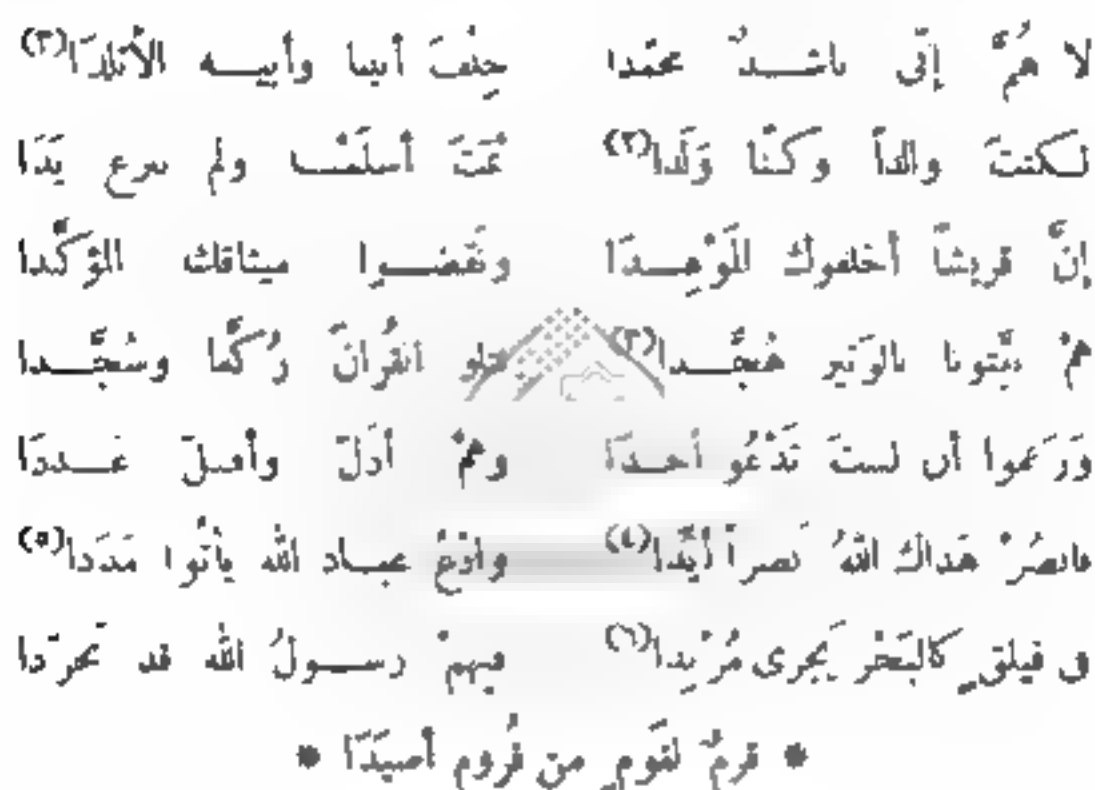 لا هُمَّ إنّى ناشــدٌ محمّدا حِلْفَ أبينا وأبيــه الأتلدَا(٢)
لكنتَ والداً وكنَّا وَلَدا(٢) ثُمّتَ أسلَمْنــا ولم ننزع يَدَا
إنّ قريشاً أخلفوك المَوْعِــدَا ونقَضــوا ميثاقك المؤكّدا
همْ بيّتونا بالوَتير هُجَّــدا(٣) نتلو القُرانَ رُكّعا وسُجَّــدا
وَزَعموا أن لستَ تَدْعُو أحـدَا وهمْ أذلّ وأقــلّ عــددَا
فانصُرْ هَداك اللهُ نَصراً أيِّدا(٤) وادْعُ عبـاد الله يأتُوا مَدَدا(٥)
فى فيلقٍ كالبَحْر يَجرى مُزْبِدا(٦) فيهمْ رســولُ الله قد تَجرّدا
* قرمٌ لقَومٍ من قُروم أصيَدَا *